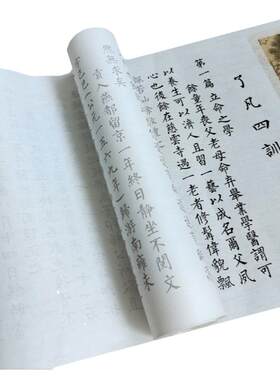 了凡四訓
第一篇立命之學
餘童年喪父老母命弃畢業學醫謂可
以養生可以濟人且習一藝以成名爾父夙
心也後餘在慈雲寺遇一老者修髯偉貌飄
然無求矣
貢入燕都留京一年終日靜坐不閱文
己巳一公元一五六九年一歸遊南雍未